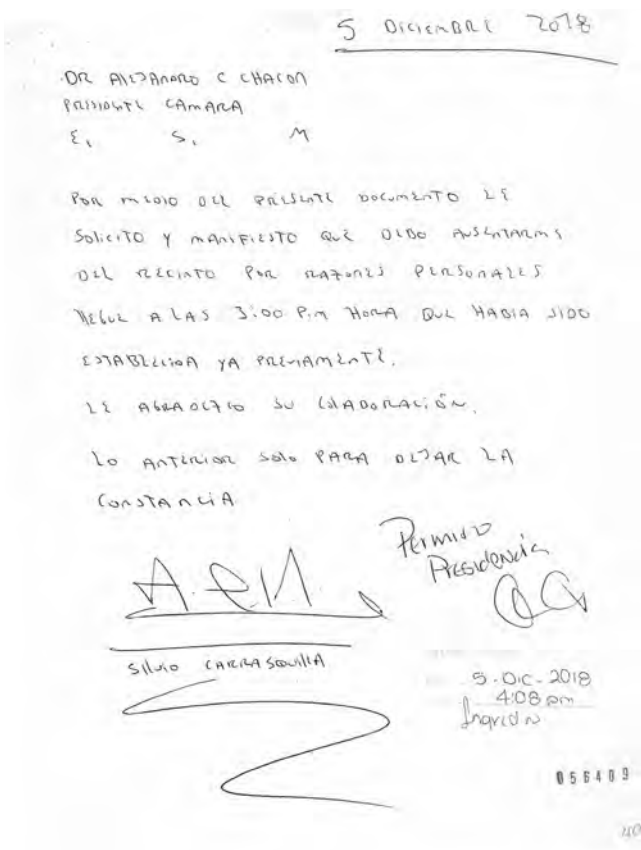 5 DICIEMBRE 2018
DR ALEJANDRO C CHACON
PRESIDENTE CAMARA
E, S, M
POR MEDIO DEL PRESENTE DOCUMENTO LE
SOLICITO Y MANIFIESTO QUE DEBO AUSENTARME
DEL RECINTO POR RAZONES PERSONALES
LLEGUE A LAS 3:00 P.M HORA QUE HABIA SIDO
ESTABLECIDA YA PREVIAMENTE.
LE AGRADEZCO SU COLABORACIÓN.
LO ANTERIOR SOLO PARA DEJAR LA
CONSTANCIA
Permiso
Presidencia
SILVIO CARRASQUILLA
5-DIC-2018
4:08 pm
Ingrid N
056409